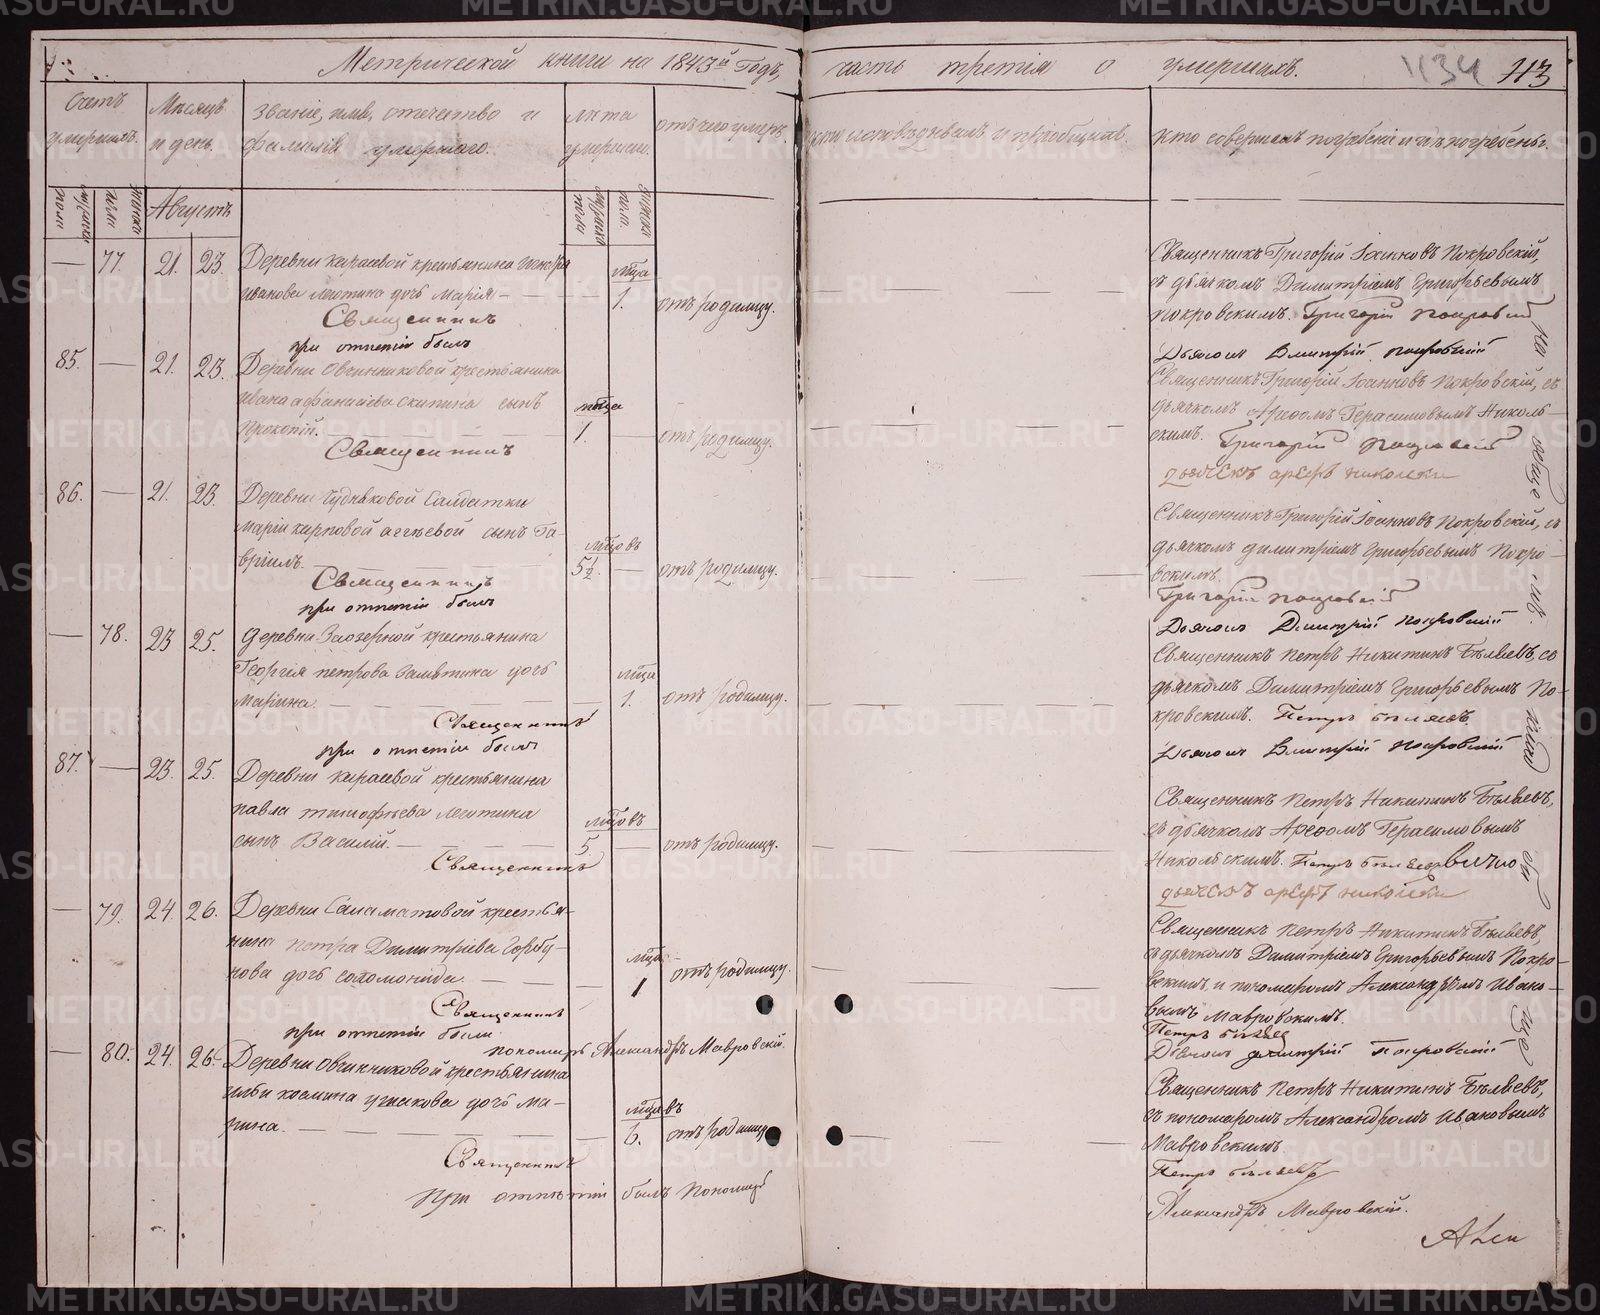 Метрической книги на 1843й Годъ, часть третія о умершихъ.
1134 113
Счетъ умершихъ.
Мѣсяцъ и день.
Званіе, имя, отечество и
фамилія умершаго.
лѣта умершаго.
отъ чего умеръ.
кто исповѣдывалъ и пріобщалъ.
кто совершалъ погребеніе и гдѣ погребены.
мужеска пола
женска пола
Августъ
мужеска пола
женска пола
— 77. 21. 23. Деревни Карасевой крестьянина
Иванова дочь Марія —
мѣца
1. отъ родимцу.
Священникъ
при отпетіи былъ
Священникъ Григорій Іоанновъ Покровскій,
съ дьячкомъ Димитріемъ Григорьевымъ
Покровскимъ. Григорій Покровскій
Дьячокъ Димитрій Покровскій
85. — 21. 23. Деревни Овчинниковой крестьянина
Ивана Афанасіева Скипина сынъ
Прокопій.
мѣца
1. — отъ родимцу.
Священникъ
Священникъ Григорій Іоанновъ Покровскій, съ
дьячкомъ Арефомъ Герасимовымъ Николь-
скимъ. Григорій Покровскій
дьячекъ арефъ николски
86. — 21. 23. Деревни Чудняковой Салдатки
Маріи Карповой сынъ Га-
вріилъ.
мѣцовъ
5½. — отъ родимцу.
Священникъ
при отпетіи былъ
Священникъ Григорій Іоанновъ Покровскій, съ
дьячкомъ Димитріемъ Григорьевымъ Покро-
вскимъ.
Григорій Покровскій
Дьячокъ Димитрій Покровскій
— 78. 23 25. Деревни Заозерной крестьянина
Георгія Петрова Замятина дочь
Марина.
мѣца
1. отъ родимцу.
Священникъ
при отпетіи былъ
Священникъ Петръ Никитинъ Бѣляевъ, со
дьячкомъ Димитріемъ Григорьевымъ По-
кровскимъ. Петръ Бѣляевъ
Дьячокъ Димитрій Покровскій
87. — 23. 25. Деревни Карасевой крестьянина
Павла Тимофѣева
сынъ Василій. —
мѣцовъ
5 — отъ родимцу.
Священникъ
Священникъ Петръ Никитинъ Бѣляевъ,
съ дьячкомъ Арефомъ Герасимовымъ
Никольскимъ. Петръ Бѣляевъ
дьячекъ арефъ николски
— 79. 24. 26. Деревни Саламатовой крестья-
нина Петра Димитріева Горбу-
нова дочь Соломонида.
мѣца
1 отъ родимцу.
Священникъ
при отпетіи были
пономарь Александръ Мавровскій.
Священникъ Петръ Никитинъ Бѣляевъ,
съ дьячкомъ Димитріемъ Григорьевымъ Покро-
вскимъ, и пономаромъ Александромъ Ивано-
вымъ Мавровскимъ.
Петръ Бѣляевъ
Дьячокъ Димитрій Покровскій
— 80. 24. 26. Деревни Овчинниковой крестьянина
Ильи Космина Ушакова дочь Ма-
рина.
мѣцовъ
6. отъ родимцу
Священникъ
При отпетіи былъ Пономарь
Священникъ Петръ Никитинъ Бѣляевъ,
съ пономаромъ Александромъ Ивановымъ
Мавровскимъ
Петръ Бѣляевъ
Александръ Мавровскій.
METRIKI.GASO-URAL.RU